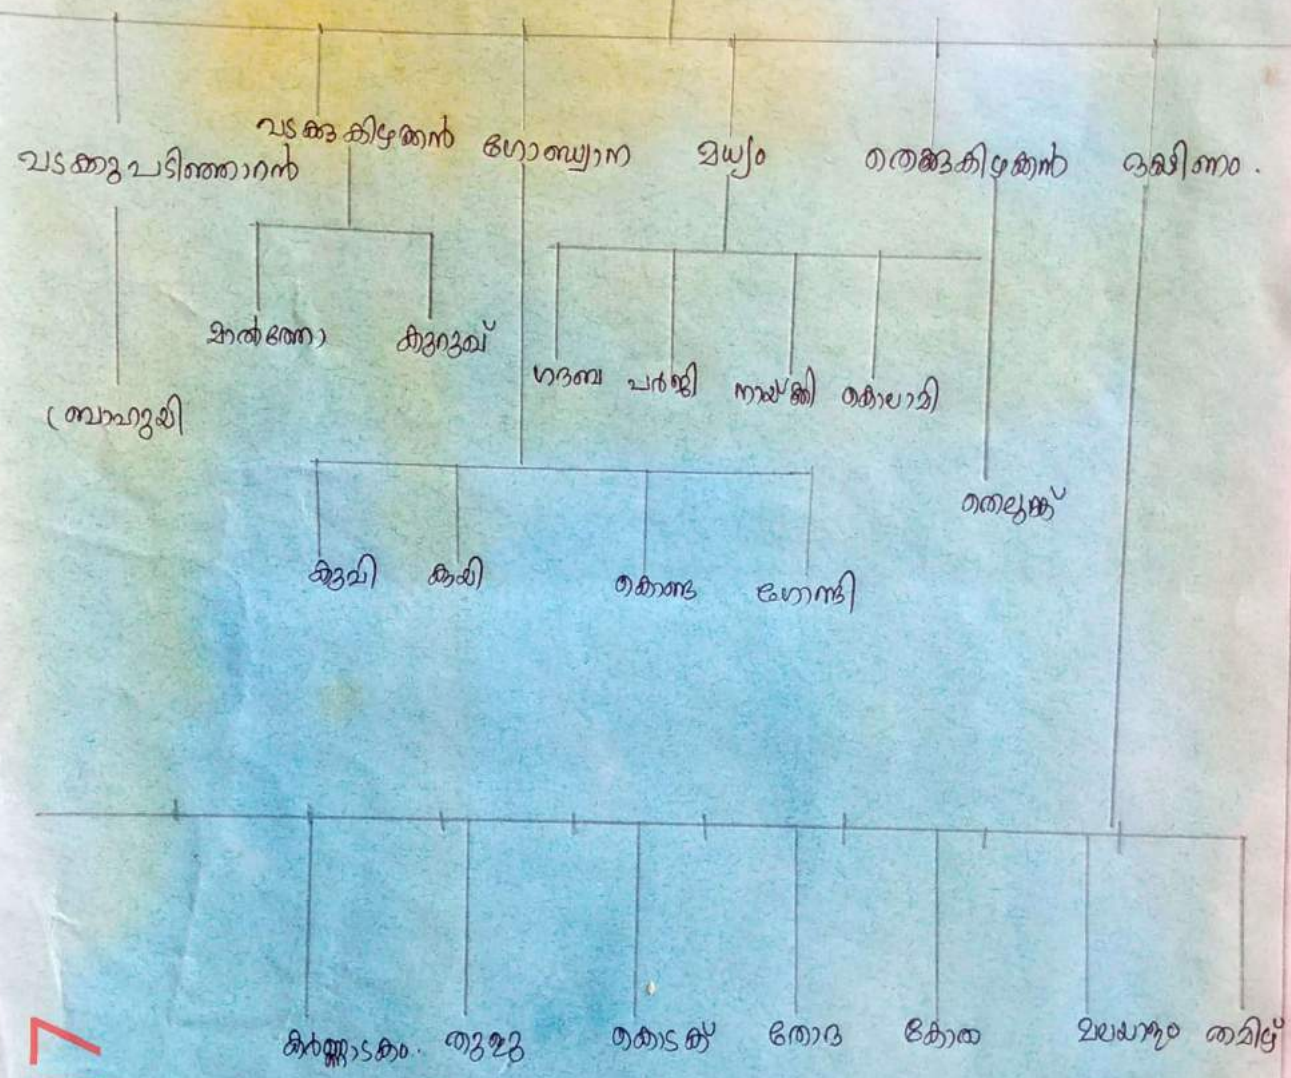 വടക്കുപടിഞ്ഞാറൻ വടക്കുകിഴക്കൻ ഗോണ്ഡ്വാന മധ്യം തെക്കുകിഴക്കൻ ദക്ഷിണം.
മാൽത്തോ കുറുഖ്
ഗദബ പർജി നായ്ക്കി കൊലാമി
ബ്രാഹുയി
തെലുങ്ക്
കുവി കുയി കൊണ്ട ഗോണ്ടി
കർണ്ണാടകം. തുളു കൊടക് തോദ കോത മലയാളം തമിഴ്
7